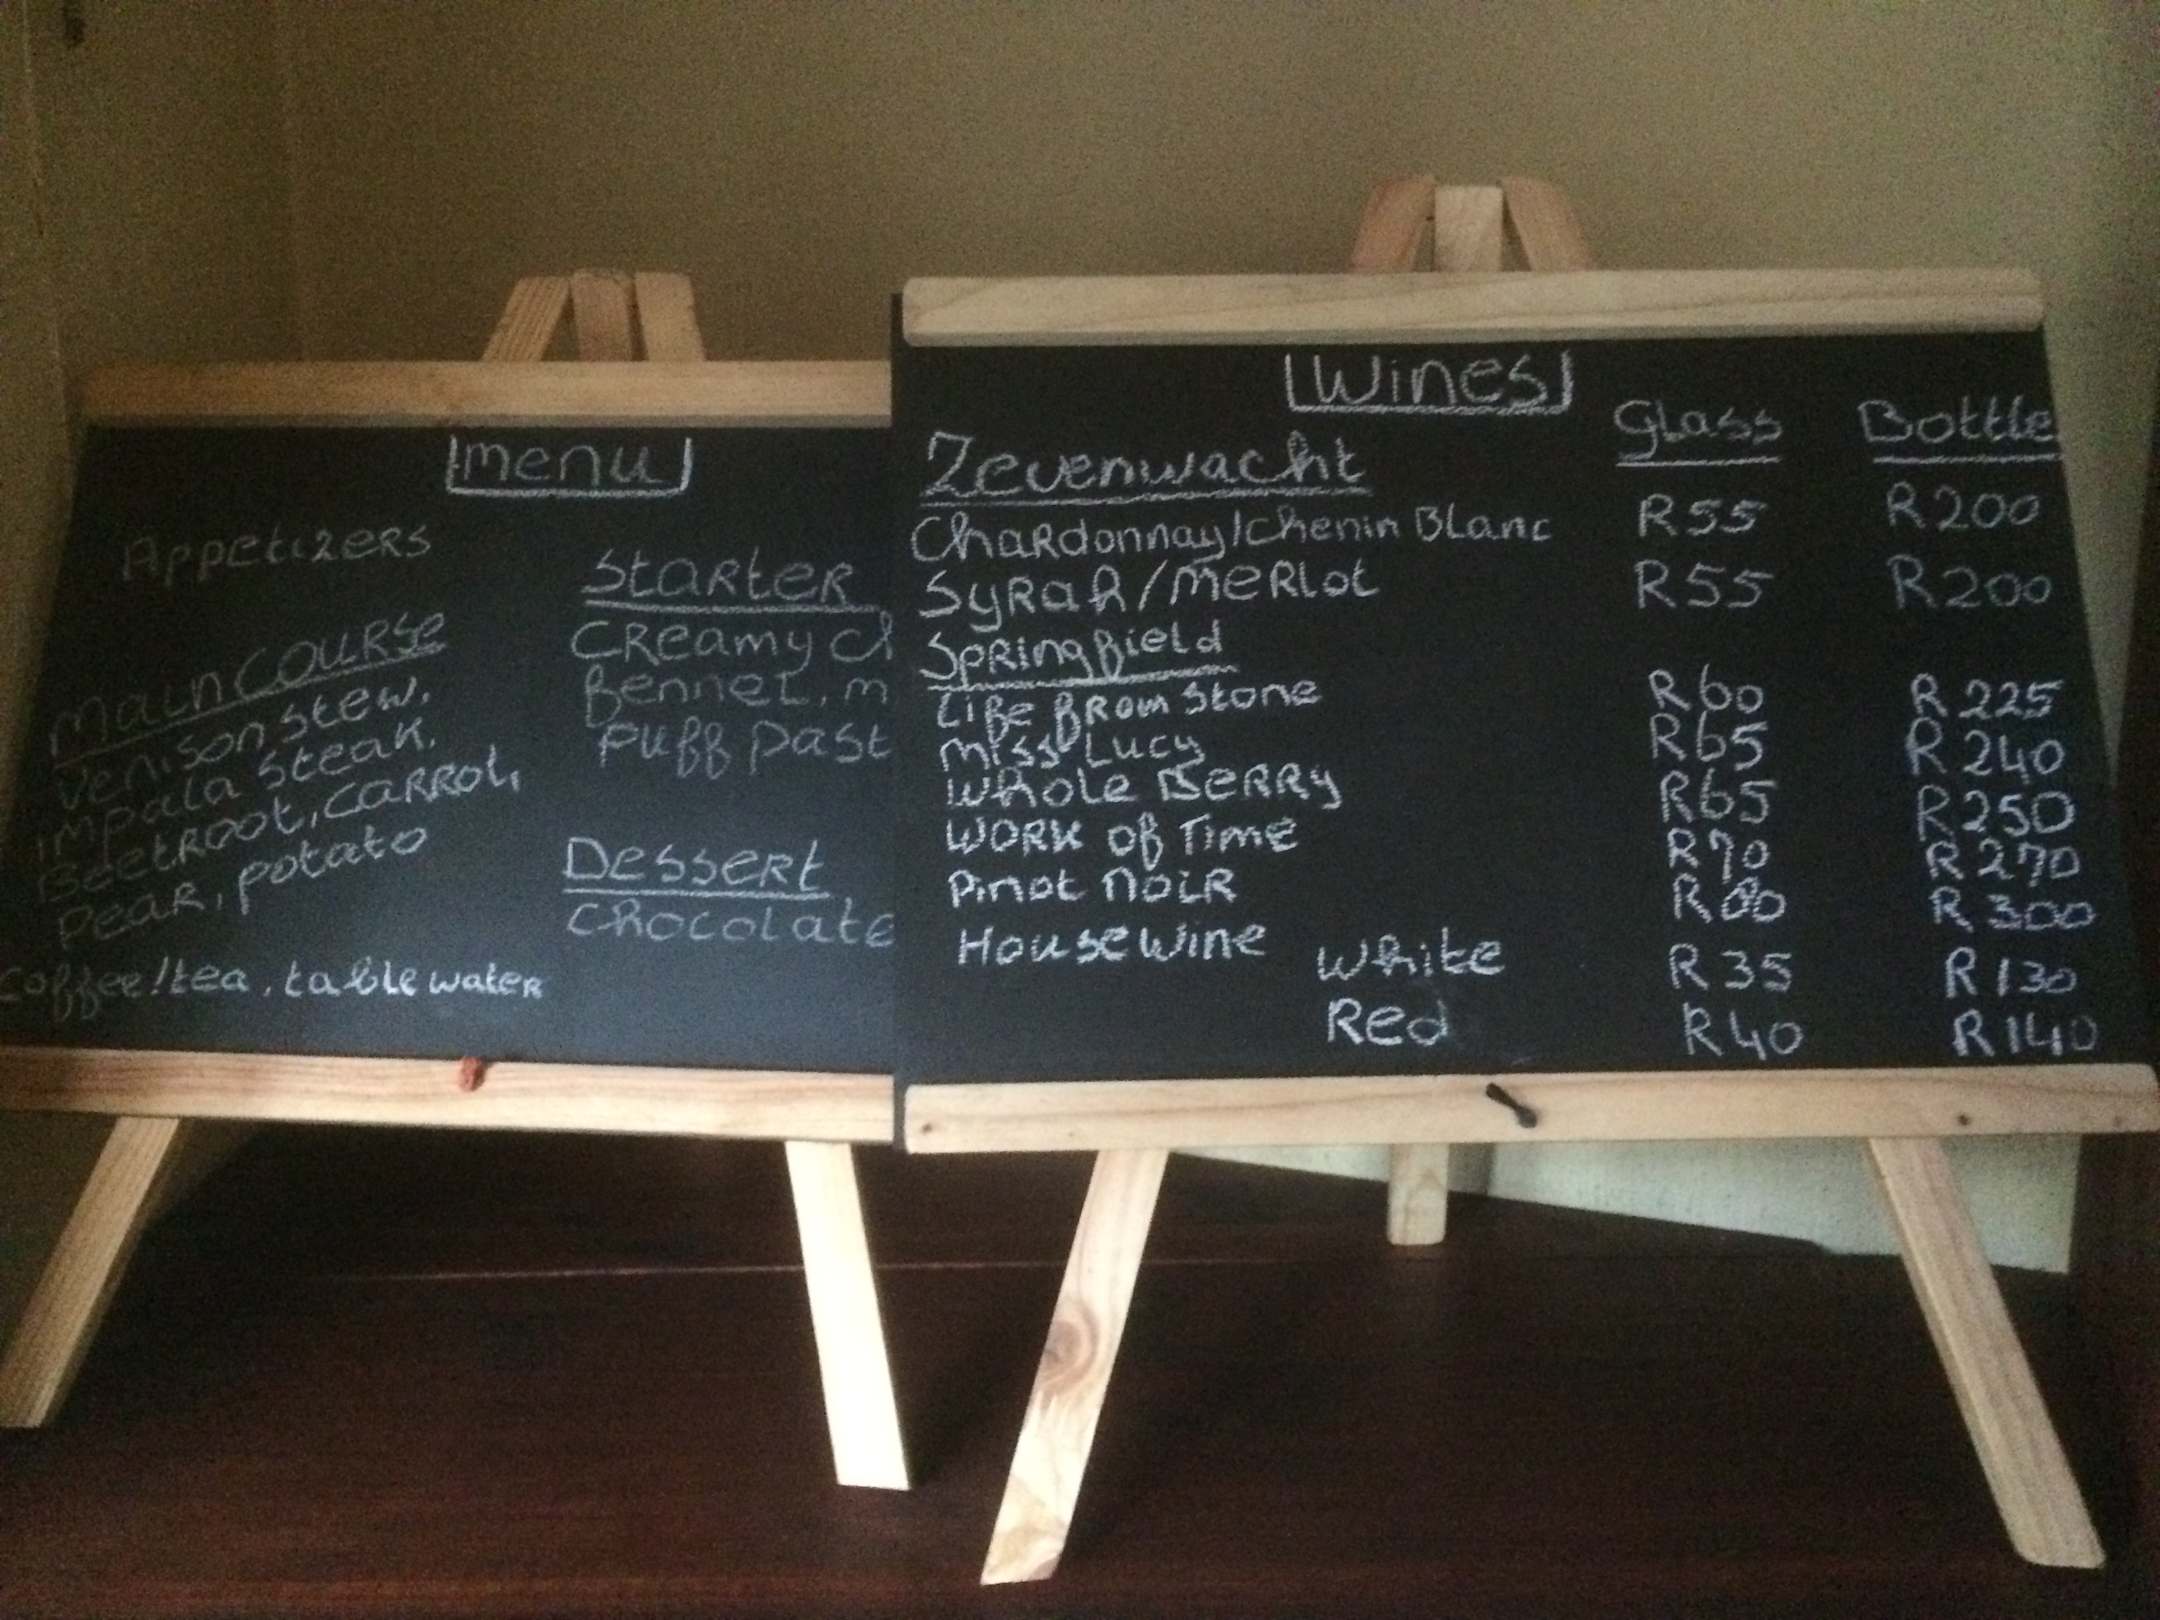 menu
Appetizers
Main Course
Venison stew,
Impala steak,
Beetroot, carrot,
Pear, potato
Coffee/tea, table water
Starter
Creamy
Fennel,
Puff
Dessert
Chocolate
Wines
Glass Bottle
Zevenwacht
Chardonnay/Chenin Blanc R55 R200
Syrah/Merlot R55 R200
Springfield
Life from Stone R60 R225
Miss Lucy R65 R240
Whole Berry R65 R250
Work of Time R70 R270
Pinot Noir R80 R300
House Wine
White R35 R130
Red R40 R140